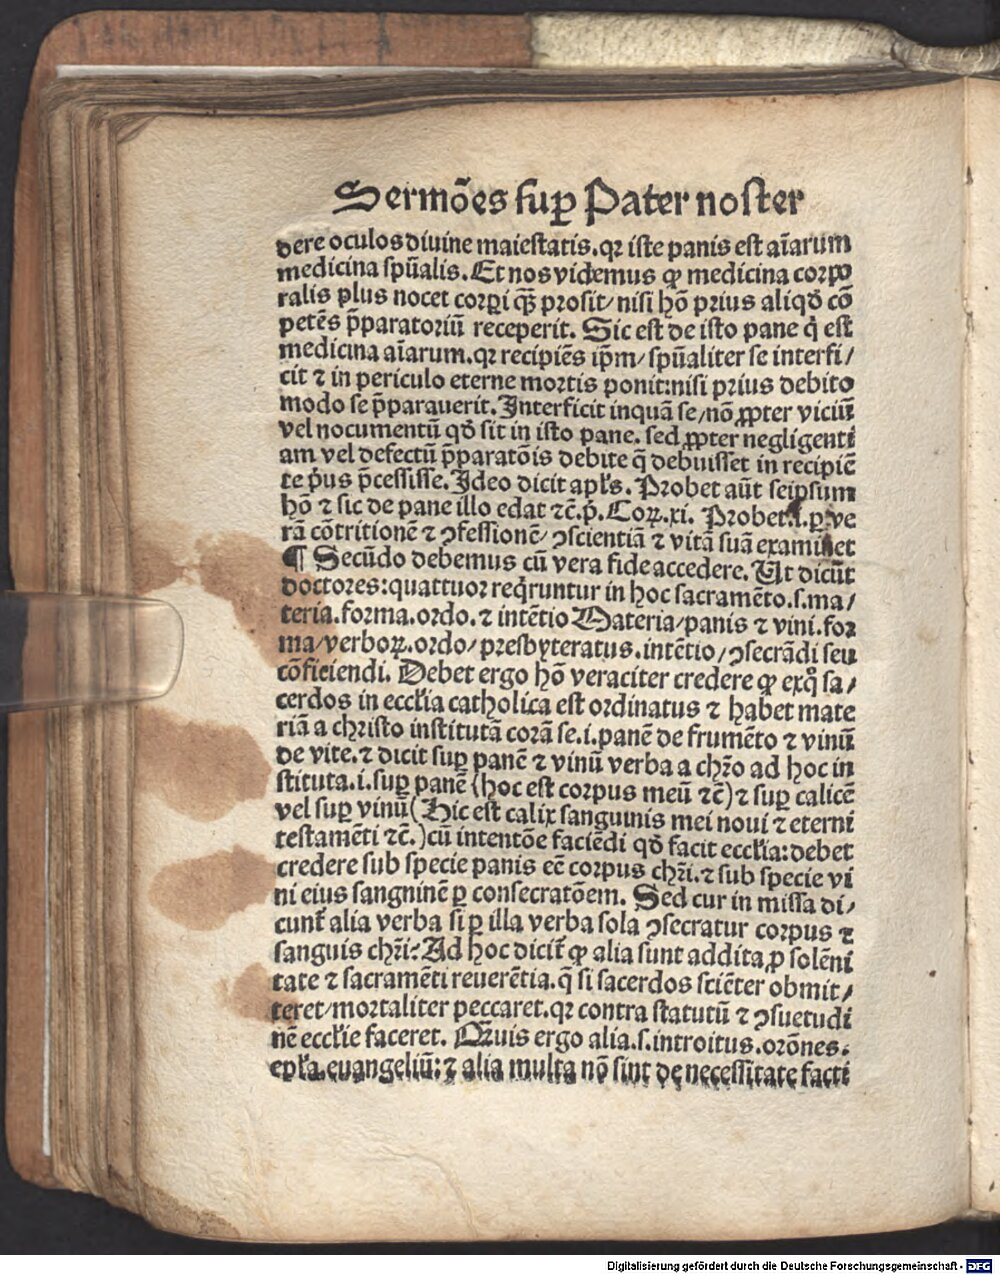 Sermões suꝑ Pater noster
dere oculos diuine maiestatis. qꝛ iste panis est aĩarum
medicina spũalis. Et nos videmus ꝙ medicina corpo
ralis plus nocet corꝑi qꝫ prosit/ nisi hõ prius aliqđ cõ
petẽs p̃paratoriũ receperit. Sic est de isto pane q̇ est
medicina aĩarum. qꝛ recipiẽs ip̃m/ spũaliter se interfi/
cit ⁊ in periculo eterne mortis ponit: nisi prius debito
modo se p̃parauerit. Interficit inquã se/ nõ ꝓpter viciũ
vel nocumentũ qđ sit in isto pane. sed ꝓpter negligenti
am vel defectũ p̃paratõis debite q̃ debuisset in recipiẽ
te ṗus p̃cessisse. Ideo dicit apl̃s. Probet aũt seipsum
hõ ⁊ sic de pane illo edat ⁊c̃. ṗ. Coꝝ. xi. Probet .i. ꝑ ve
rã cõtritionẽ ⁊ ꝯfessionẽ/ ꝯscientiã ⁊ vitã suã examinet
¶ Secũdo debemus cũ vera fide accedere. Ut dicũt
doctores: quattuor req̇runtur in hoc sacramẽto. s. ma/
teria. forma. ordo. ⁊ intẽtio Materia/ panis ⁊ vini. for
ma/ verboꝝ. ordo/ presbyteratus. intẽtio/ ꝯsecrãdi seu
cõficiendi. Debet ergo hõ veraciter credere ꝙ exq̊ sa/
cerdos in eccl̃ia catholica est ordinatus ⁊ habet mate
riã a christo institutã corã se. i. panẽ de frumẽto ⁊ vinũ
de vite. ⁊ dicit suꝑ panẽ ⁊ vinũ verba a chr̃o ad hoc in
stituta. i. suꝑ panẽ (hoc est corpus meũ ⁊c̃) ⁊ suꝑ calicẽ
vel suꝑ vinũ (Hic est calix sanguinis mei noui ⁊ eterni
testamẽti ⁊c̃.) cũ intentõe faciẽdi qđ facit eccl̃ia: debet
credere sub specie panis eẽ corpus chr̃i. ⁊ sub specie vi
ni eius sangninẽ ꝑ consecratõem. Sed cur in missa di/
cunt̃ alia verba si ꝑ illa verba sola ꝯsecratur corpus ⁊
sanguis chr̃i? Ad hoc dicit̃ ꝙ alia sunt addita ꝓ solẽni
tate ⁊ sacramẽti reuerẽtia. q̃ si sacerdos sciẽter obmit/
teret/ mortaliter peccaret. qꝛ contra statutũ ⁊ ꝯsuetudi
nẽ eccl̃ie faceret. Qꝫuis ergo alia. s. introitus. orõnes.
epl̃a. euangeliũ: ⁊ alia multa nõ sint de necessitate facti
Digitalisierung gefördert durch die Deutsche Forschungsgemeinschaft - DFG